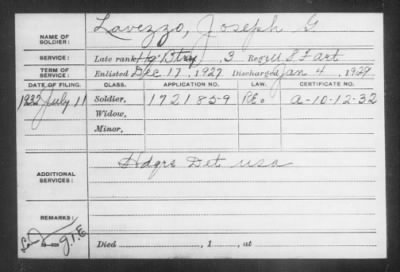 NAME OF SOLDIER: Lavezzo, Joseph G.
SERVICE: Late rank Hq Btry, 3 Reg't U S F art
TERM OF SERVICE: Enlisted Dec 17, 1927 Discharged Jan 4, 1929
DATE OF FILING. CLASS. APPLICATION NO. LAW. CERTIFICATE NO.
1932 July 11 Soldier, 1721859 a-10-12-32
Widow,
Minor,
ADDITIONAL SERVICES: Hdqrs Det usa
REMARKS: J.I.E
Died , 1 , at